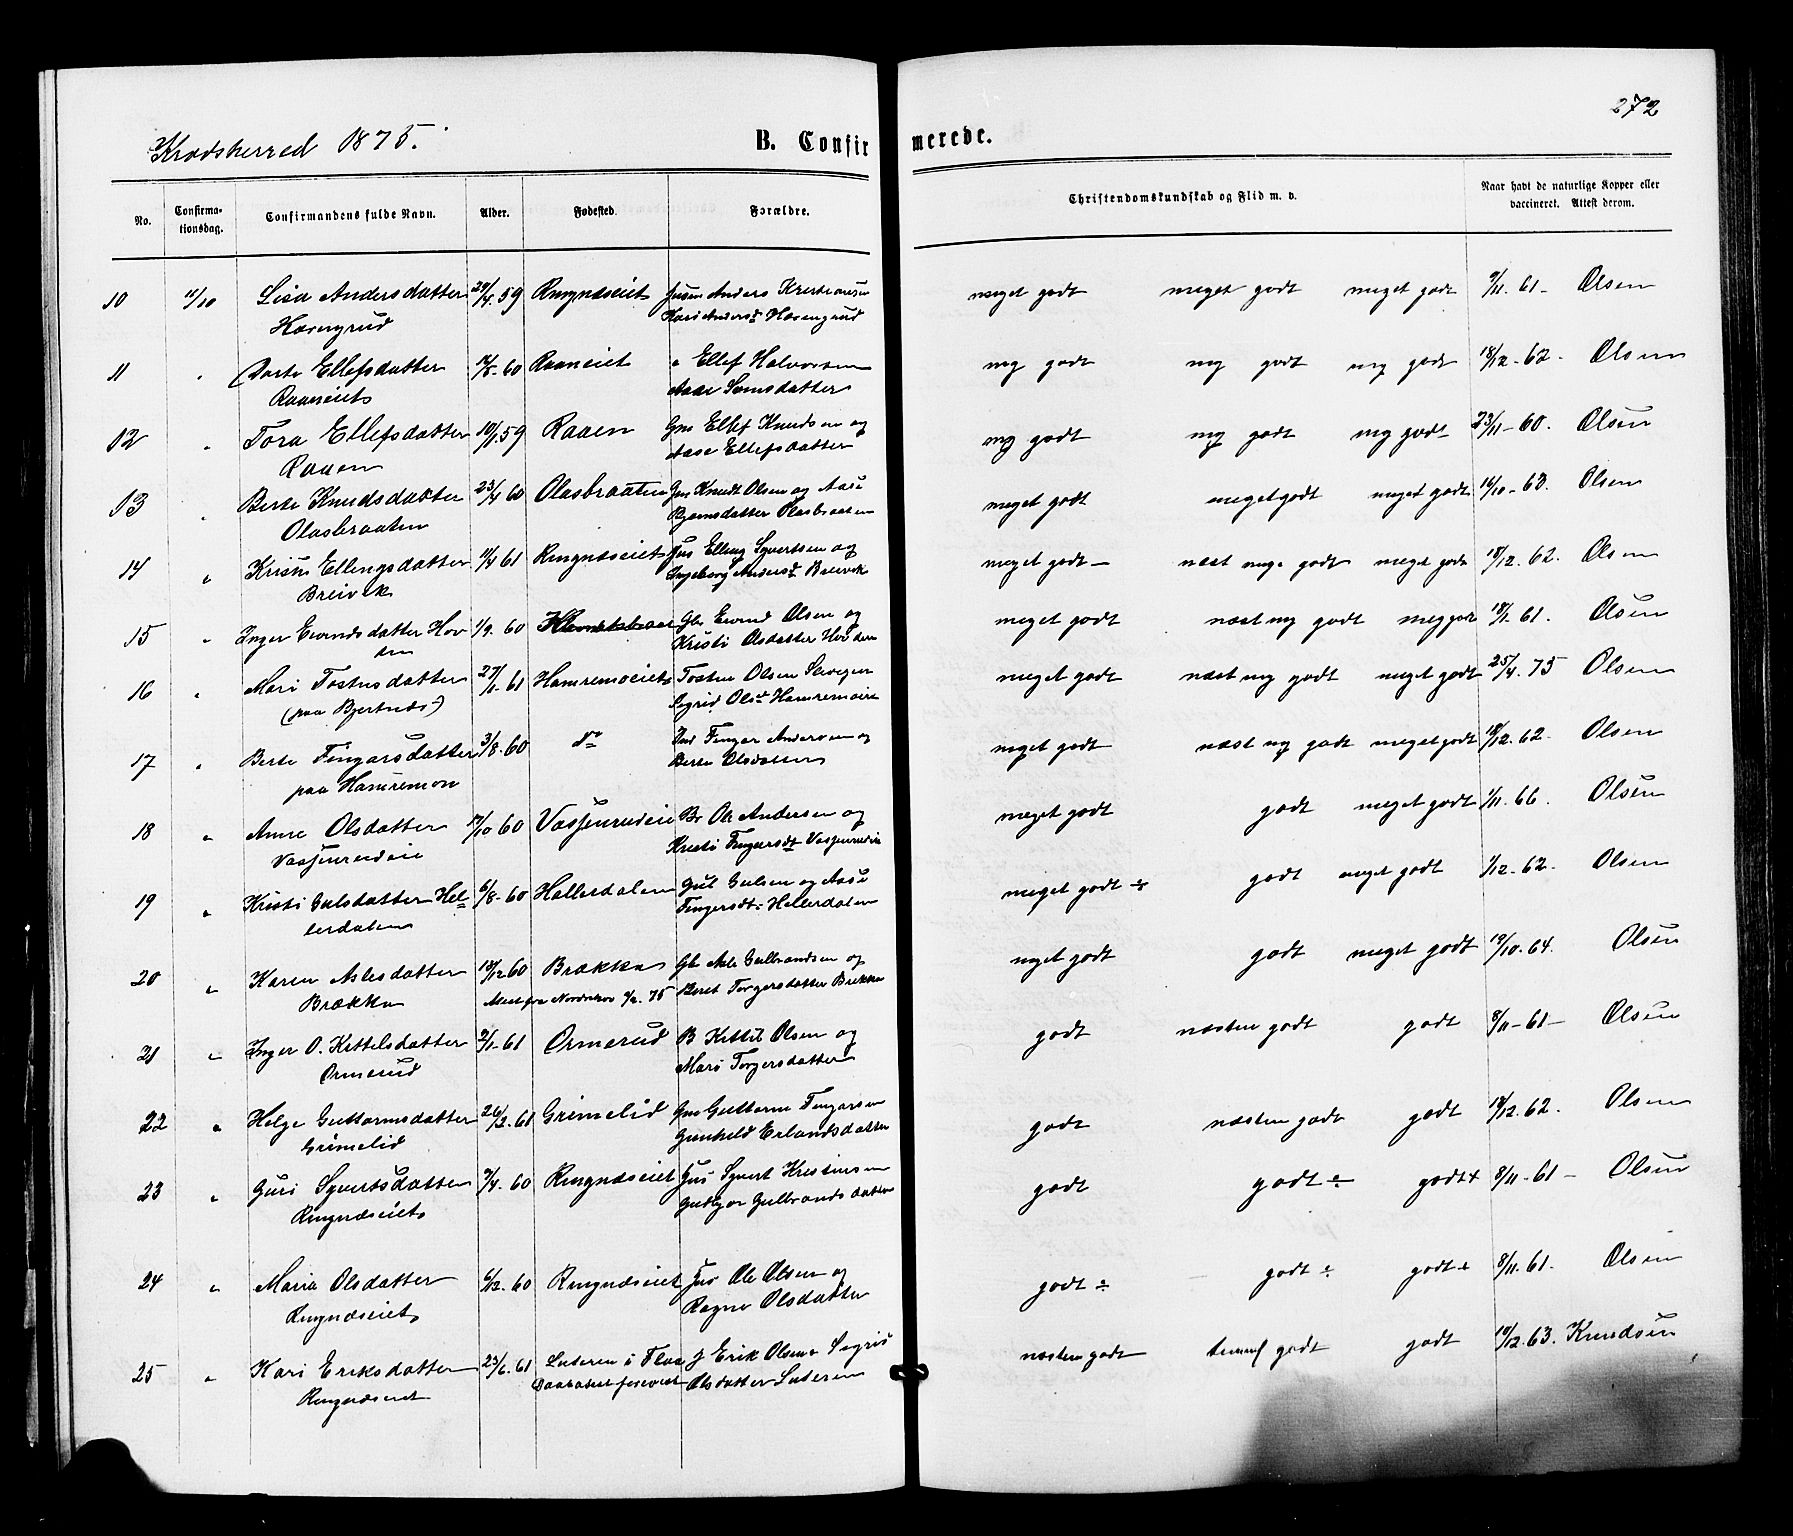 272
Krødsherred 1875.
B. Confirmerede.
No. Confirma-tionsdag. Confirmandens fulde Navn. Alder. Fødested. Forældre. Christendomskundskab og Flid m. v. Naar havt de naturlige Kopper eller vaccineret. Attest derom.
10 11/10 Lisa Andersdatter 29/4.59 Ringnæseiet Anders Kristiansen meget godt meget godt meget godt 9/11.61- Olsen
Havengrud Kari Andersd Havengrud
11 " Dorte Ellefsdatter 60 Raaneiet Ellef Halvorsen mg godt mg godt mg godt 18/12-62- Olsen
Raaneiets Aase Svensdatter
12 " Tora Ellefsdatter 10/1.59 Raaen Gm Ellef Knudsen og mg godt mg godt mg godt 23/11-60. Olsen
Raaen Aase Ellefsdatter
13 " Berte Knudsdatter 23/4 60 Olasbraaten Gm Knudt Olsen og Aase meget godt meget godt meget godt 16/10-63. Olsen
Olasbraaten Bjørnsdatter Olasbraaten
14 " Ellingsdatter 11/4 61 Ringnæseiet Jus Elling Syvertsen og meget godt - næst meg godt meget godt 18/12.62. Olsen
Breivik Ingeborg Andersd Breivik
15 " Inger Eivindsdatter Hov 1/9.60 Gbr Eivind Olsen og meget godt næst mg godt meg godt 18/1.61. Olsen
den Kristi Olsdatter Hovden
16 " Mari Tostensdatter 27/1.61 Hamremoeiets Tosten Olsen meget godt næst mg godt meget godt 25/4.75 Olsen
(paa Bjertnes) Sigrid Olsd Hamremoeie
17 " Berte Fingarsdatter 3/8.60 do Ind Fingar Andersen og meget godt næst mg godt meget godt 18/12.62- Olsen
paa Hamremon Berte Olsdatter
18 " Anne Olsdatter 60 Vassenrudeie Br Ole Andersen og meget godt godt meget godt 1/11.66. Olsen
Vassenrudeie Kristi Fingarsdt Vassenrudeie
19 " Kristi Gulsdatter Hel- 6/8-60 Hallerdalen Gul Gulsen og Aase meget godt ÷ godt meget godt 1/12-62. Olsen
lerdalen Fingersdt. Hellerdalen
20 " Karen Aslesdatter 18/12 60 Brækka Gb Asle Gulbrandsen og meget godt godt meget godt 19/10.64. Olsen
Brækka Attest fra Norderhov 9/2.75 Beret Torgersdatter Brekka
21 " Inger O. Kettelsdatter 2/1-61 Ormerud B Kittil Olsen og godt næsten godt godt 8/11-61- Olsen
Ormerud Mari Torgersdatter
22 " Helge Guttormsdatter 26/2.61 Grimelid Gm Guttorm Fingarsen godt næsten godt godt 18/12.62. Olsen
Grimelid Gunhild Erlandsdatter
23 " Guri Syvertsdatter 9/4.60 Ringnæseiet Jus Syvert Kristensen godt godt ÷ godt + 8/11-61- Olsen
Ringnæseiets Gulbrandsdatter
24 " Maria Olsdatter 6/12.60 Ringnæseiet Jus Ole Olsen og godt ÷ godt ÷ godt + 8/11.61. Olsen
Ringnæseiets Ragne Olsdatter
25 " Kari Eriksdatter 23/6.61 Sæteren i Flaa J Erik Olsen Sigrid næsten godt temml godt godt 18/12.63. Knudsen
Ringnæseiet Daabsattest forevist Olsdatter Sæteren